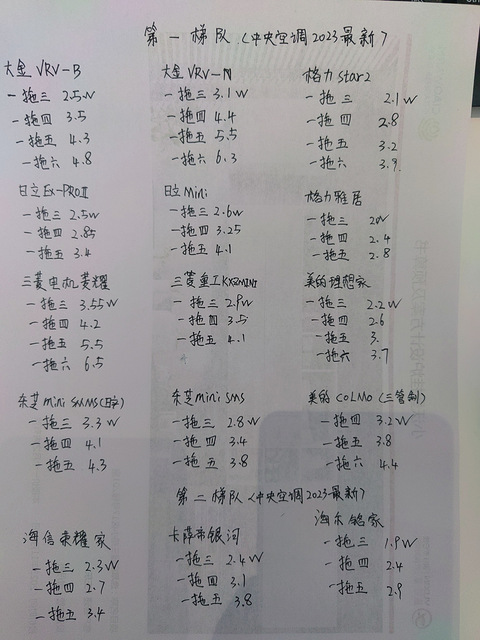 第一梯队（中央空调2023最新）
大金 VRV-B
一拖三 2.5W
一拖四 3.5
一拖五 4.3
一拖六 4.8
大金 VRV-N
一拖三 3.1W
一拖四 4.4
一拖五 5.5
一拖六 6.3
格力 star2
一拖三 2.1W
一拖四 2.8
一拖五 3.2
一拖六 3.9
日立 Ex-PROII
一拖三 2.5W
一拖四 2.85
一拖五 3.4
日立 Mini
一拖三 2.6W
一拖四 3.25
一拖五 4.1
格力雅居
一拖三 2W
一拖四 2.4
一拖五 2.8
三菱电机菱耀
一拖三 3.55W
一拖四 4.2
一拖五 5.5
一拖六 6.5
三菱重工KXZMINI
一拖三 2.8W
一拖四 3.5
一拖五 4.1
美的理想家
一拖三 2.2W
一拖四 2.6
一拖五 3.
一拖六 3.7
东芝 mini SMMS
一拖三 3.3W
一拖四 4.1
一拖五 4.3
东芝 mini SMS
一拖三 2.8W
一拖四 3.4
一拖五 3.8
美的 COLMO（三管制）
一拖四 3.2W
一拖五 3.8
一拖六 4.4
第二梯队（中央空调2023最新）
海信荣耀家
一拖三 2.3W
一拖四 2.7
一拖五 3.4
卡萨帝银河
一拖三 2.4W
一拖四 3.1
一拖五 3.8
海尔铭家
一拖三 1.9W
一拖四 2.4
一拖五 2.9